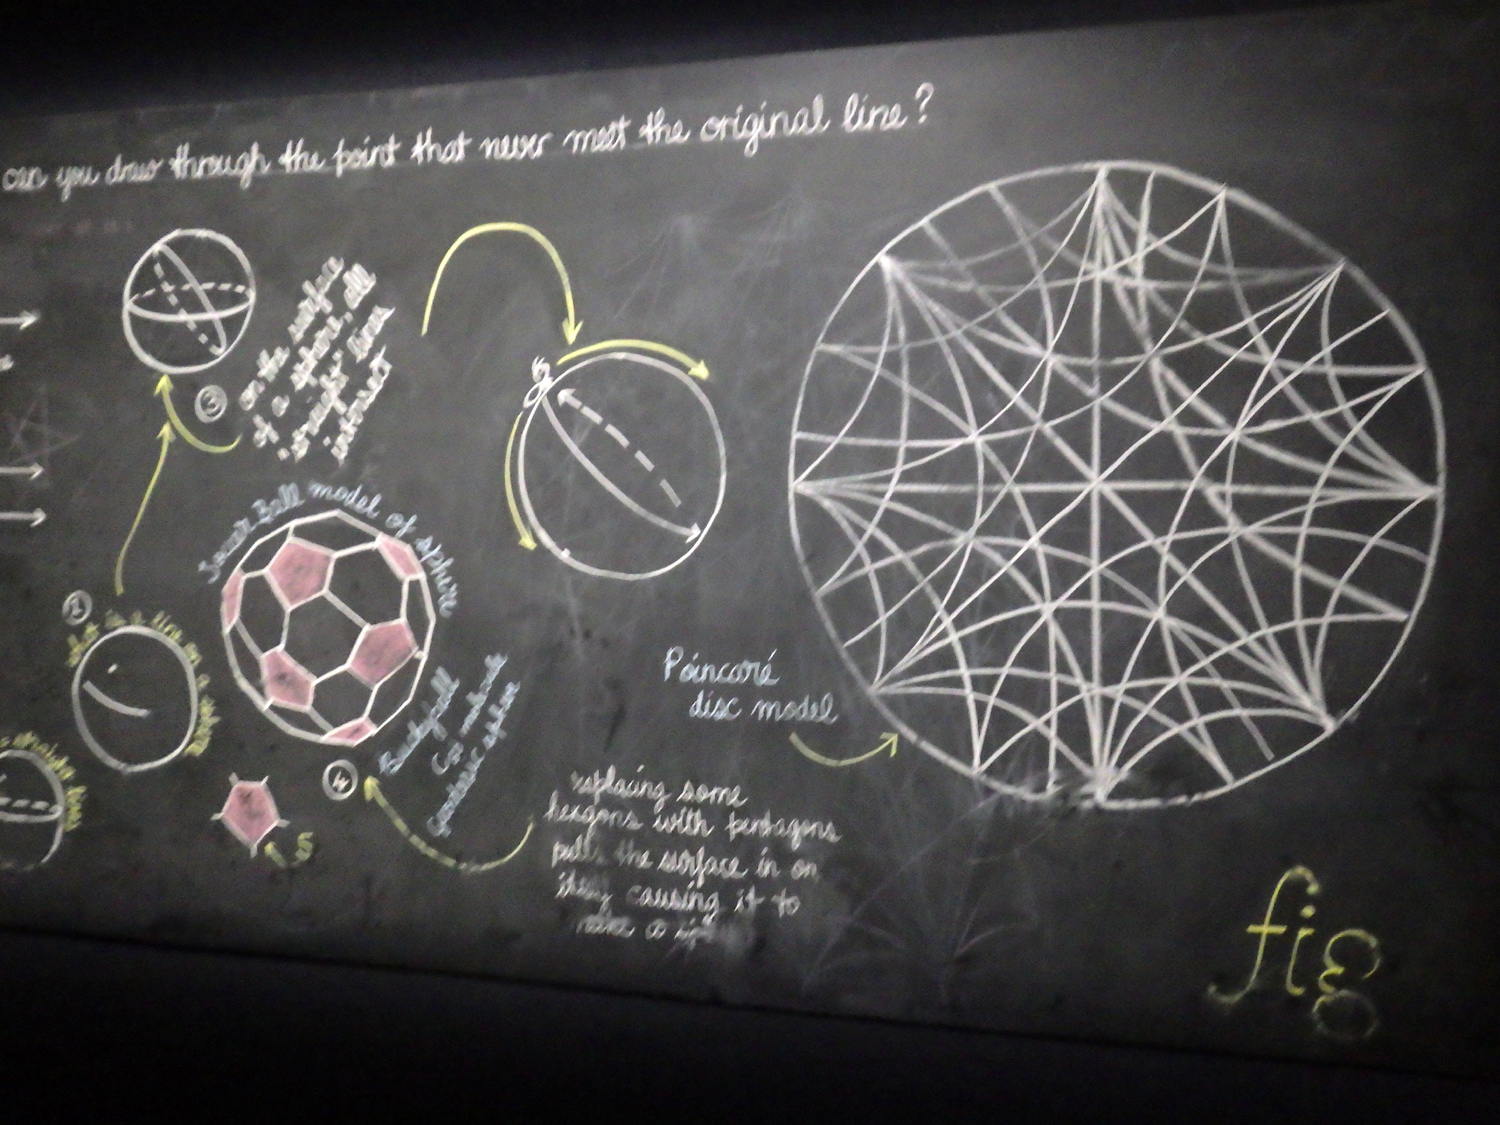 can you draw through the point that never meet the original line?
③
on the surface
of a sphere, all
"straight" lines
intersect
Soccer Ball model of sphere
②
what is a line on a
Buckyball
C60 molecule
Geodesic sphere
④
5
Poincaré
disc model
replacing some
hexgons with pentagons
pulls the surface in on
itself causing it to
make a
fig
8